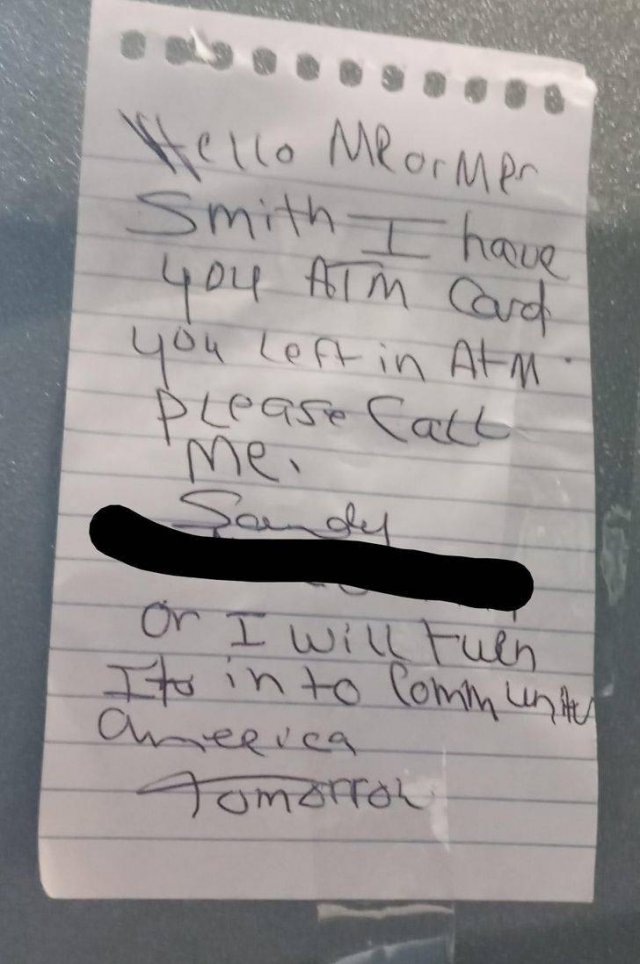 Hello MR or MRr
Smith I have
you ATM Card
you Left in AtM.
PLease Call
Me.
Sandy
or I will turn
It in to Community
america
Tomorrow